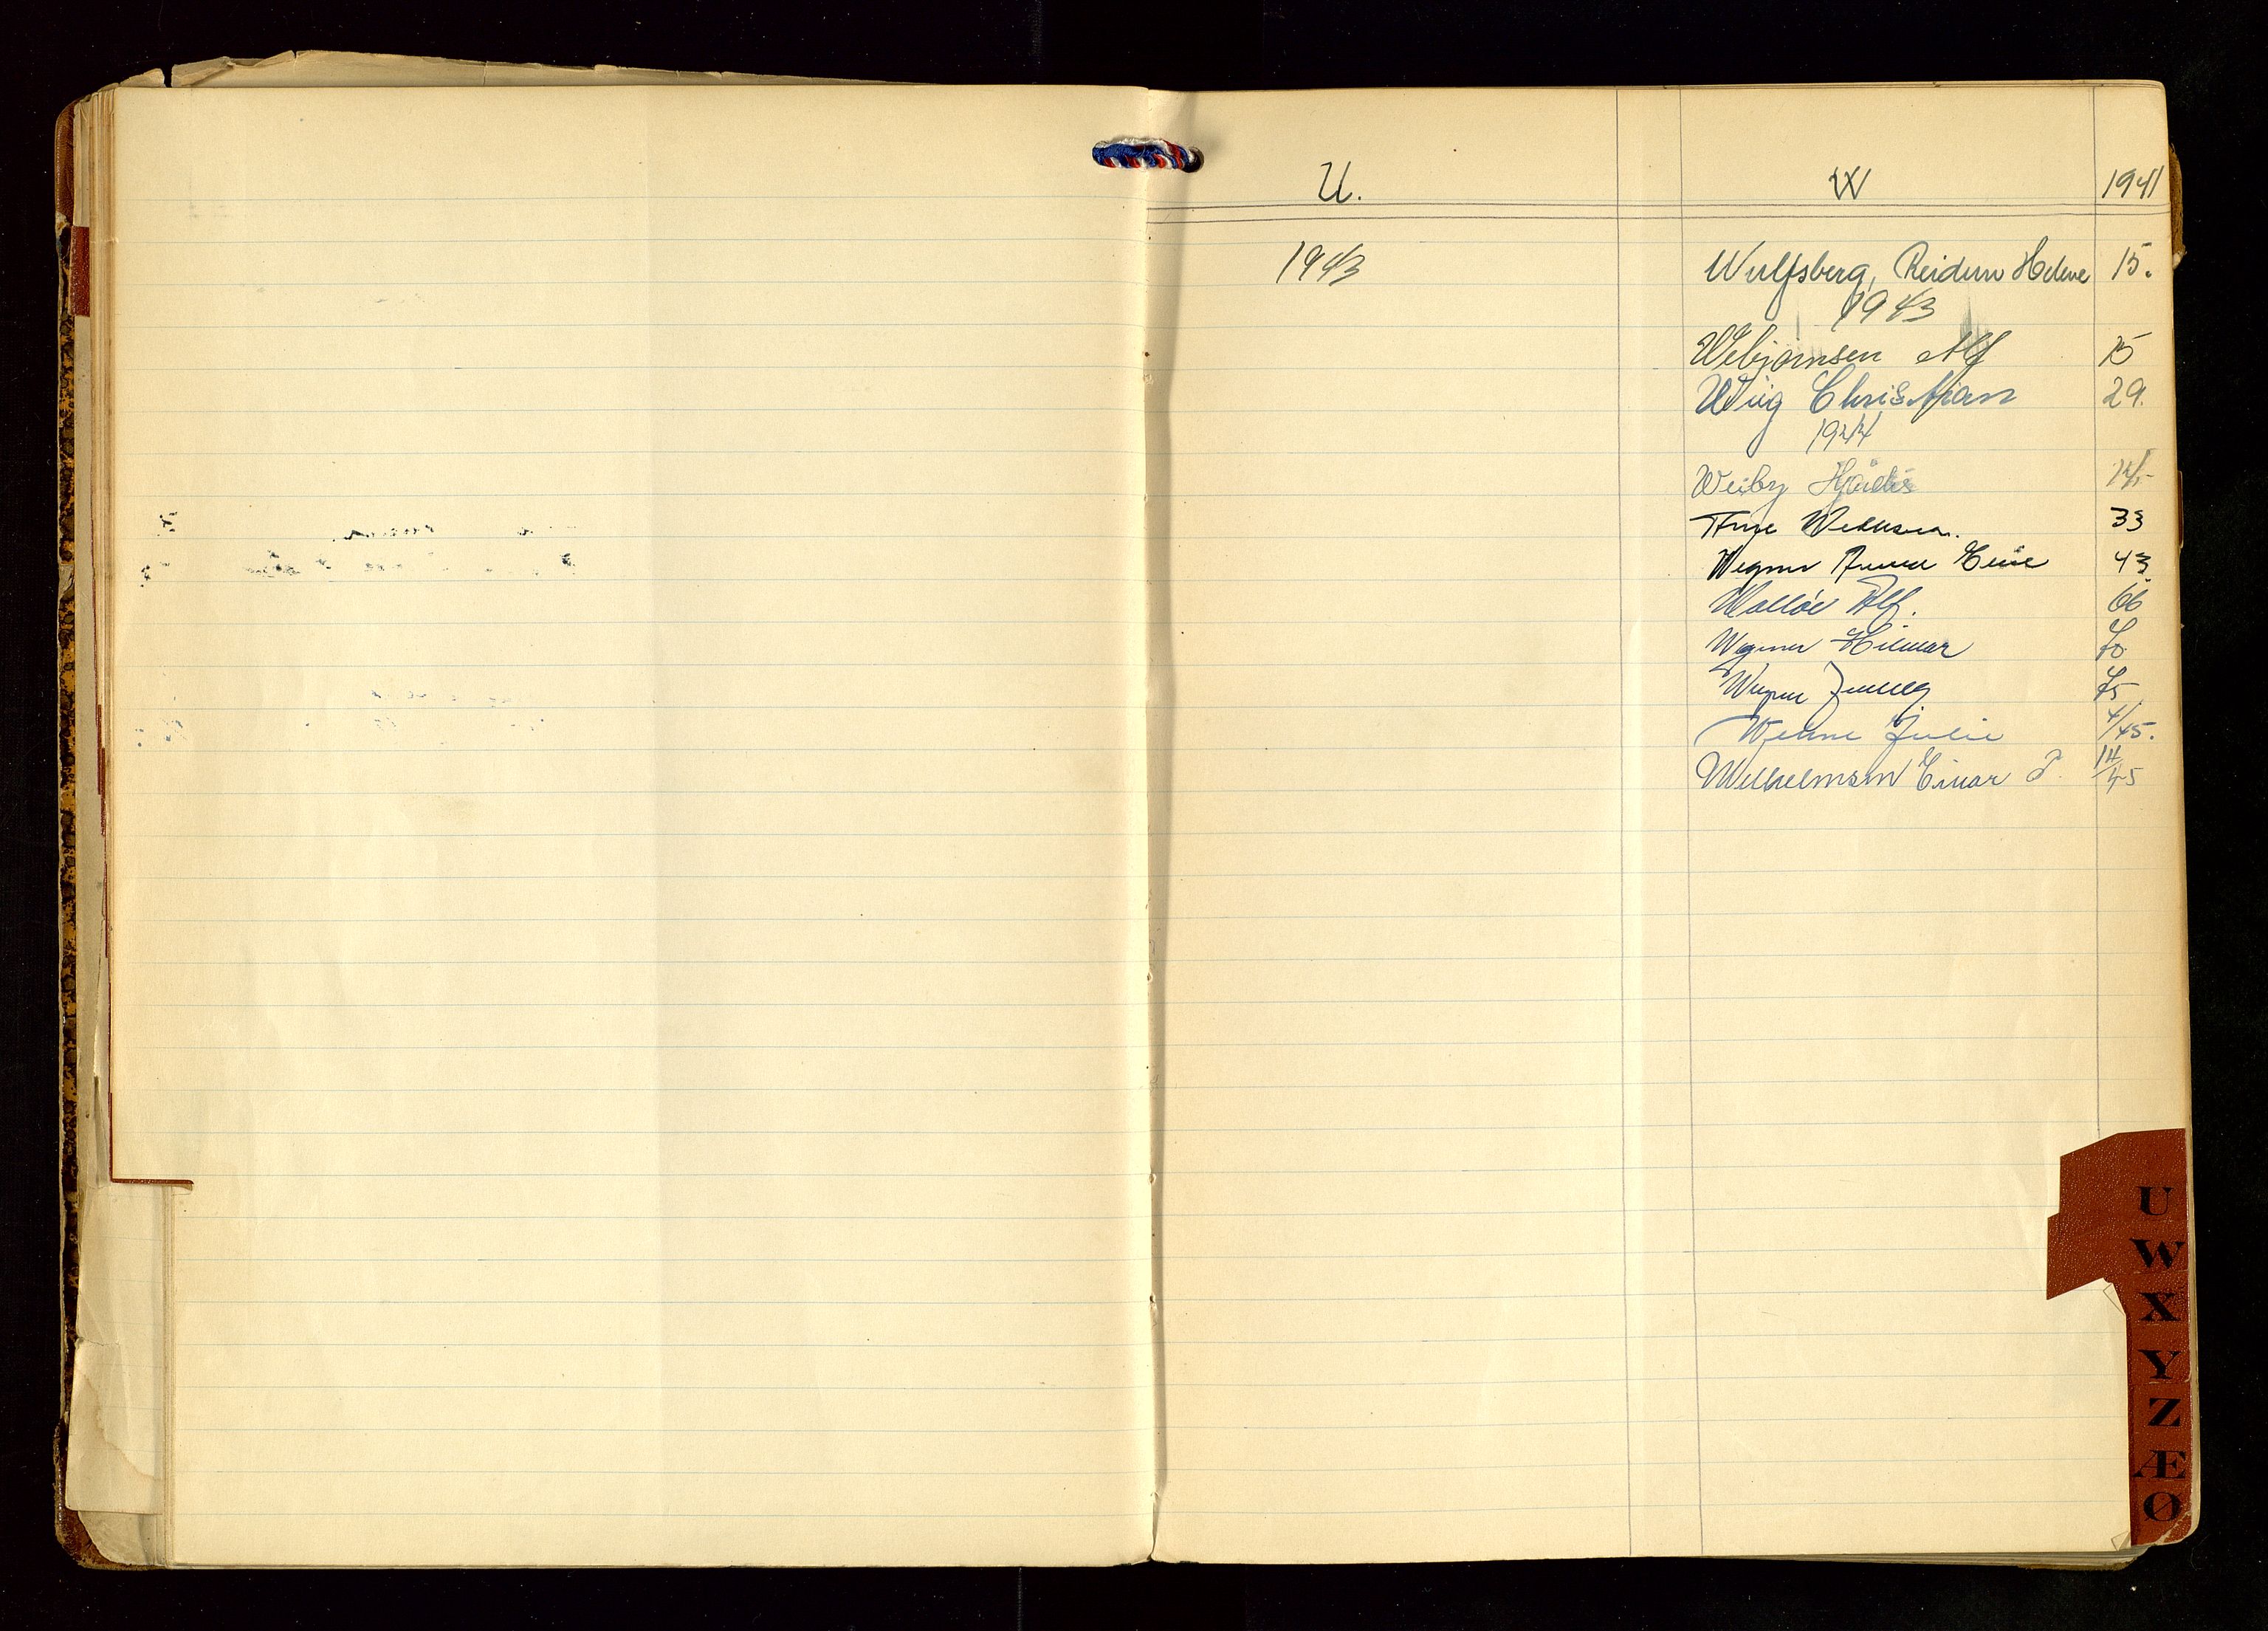 U.
W
1941
1943
Wulfsberg, Reidun Helene 15.
1943
Webjørnsen Alf 15
Wiig Christian 29.
1944
Weiby Hjørdis
33
Wegner Anna 43
Walløe Alf. 66
Wegner Hilmar 70
Wegner 75
Julie 4/45.
Wilhelmsen Einar P. 14/45
U
W
X
Y
Z
Æ
Ø